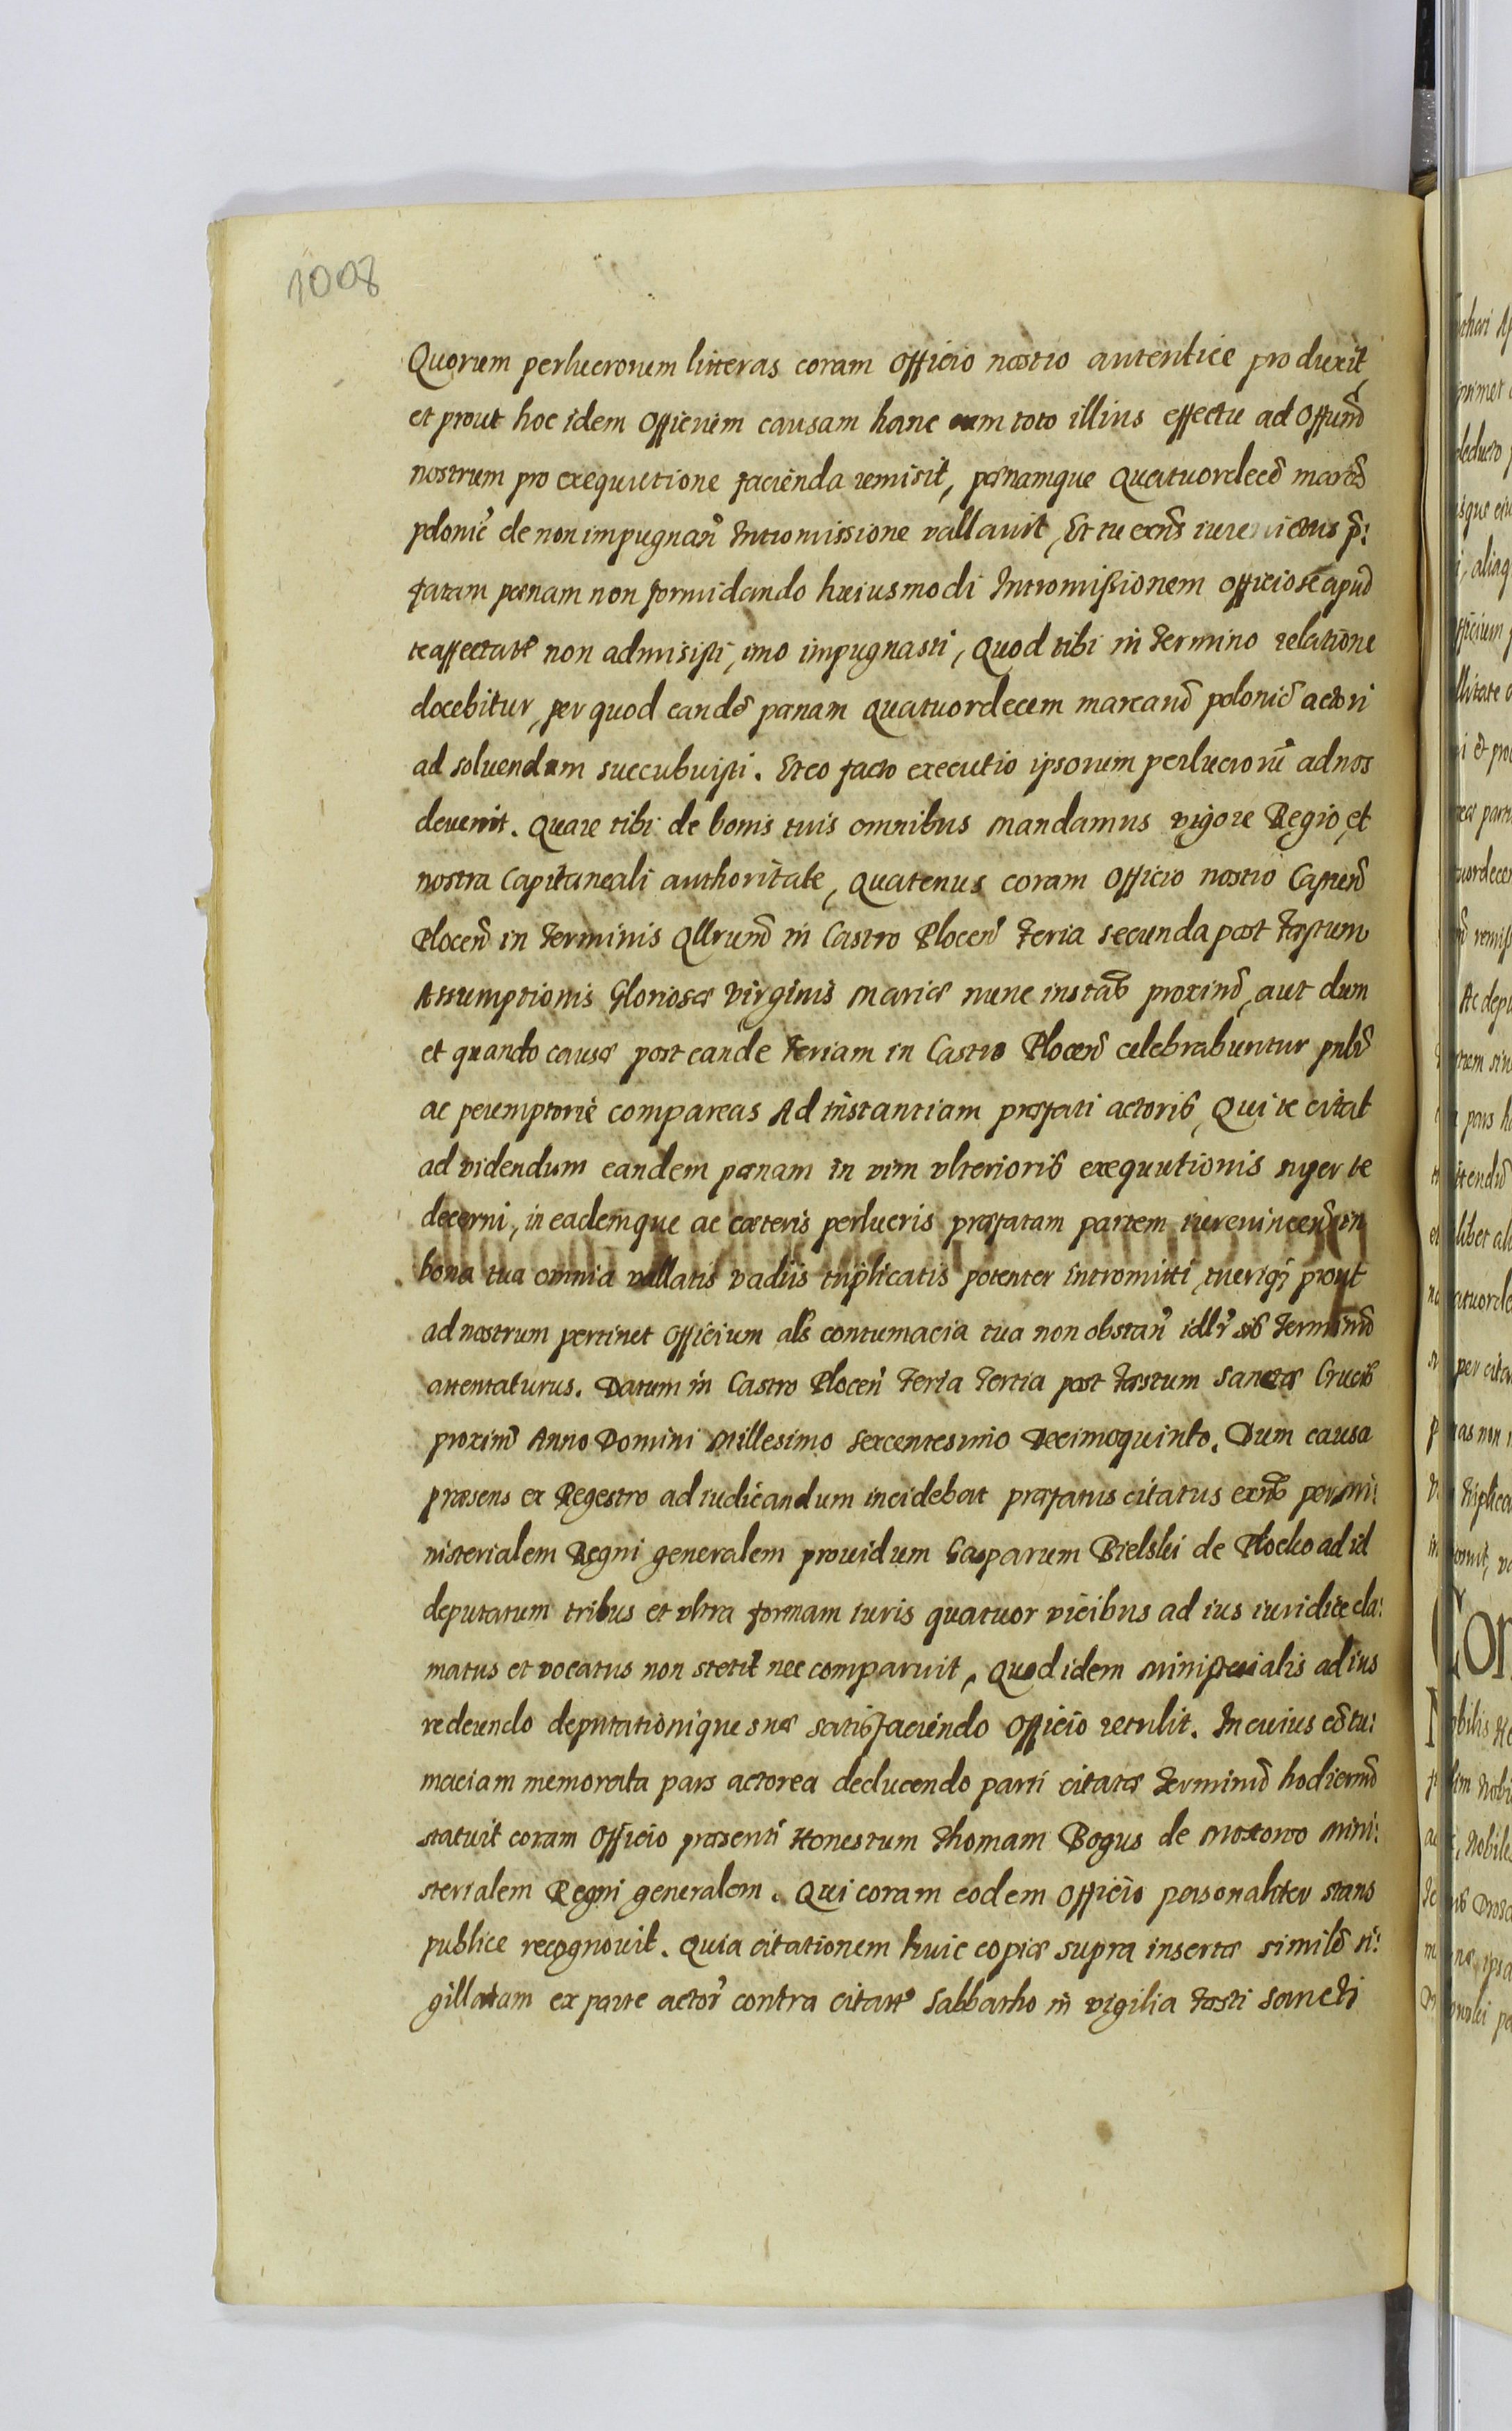 1008
Quorum perlucrorum litteras coram Officio nostro autentice produxit,
et prout hoc idem Officium causam hanc cum toto illius effectu ad Offum̃
nostrum pro exequutione facienda remisit, pœnamque Quatuordecẽ marcã
polonic̃ de non impugnañ Intromissione vallavit, Et tu exñs iurevictus p̃:
fatam pœnam non formidando huiusmodi Intromissionem officiose apud
te affectatã non admisisti, imo impugnasti, Quod tibi in termino relatione
docebitur, per quod eandẽ pœnam Quatuordecem marcarũ polonic̃ actori
ad soluendam succubuisti. Et eo facto executio ipsorum perlucrorũ ad nos
devenit. Quare tibi de bonis tuis omnibus mandamus vigore Regio, et
nostra Capitaneali authoritate, Quatenus coram Officio nostro Capneñ
Plocen̄ in terminis Qllrum̃ in Castro Plocen̄ feria secunda post festum
Assumptionis Gloriosæ Virginis Mariæ nunc instañ proximũ, aut dum
et quando causæ post eande feriam in Castro Plocen̄ celebrabuntur pnlr̃
ac peremptorie compareas Ad instantiam præfati actoris, Qui te citat
ad videndum eandem pœnam in vim vlterioris exequutionis super te
decerni, in eademque ac cæteris perlucris præfatam partem iurevincen̄ in
bona tua omnia vallatis vadiis triplicatis potenter intromitti, tueriq; prout
ad nostrum pertinet Officium als̃ contumacia tua non obstañ idlr̃ sis terminũ
attentaturus. Datum in Castro Plocen̄ feria tertia post festum Sanctæ Crucis
proximũ Anno Domini Millesimo Sexcentesimo Decimoquinto. Dum causa
præsens ex Regestro ad iudicandum incidebat præfatus citatus exñs per Mi:
nisterialem Regni generalem providum Gasparum Bielski de Plocko ad id
deputatum tribus et vltra formam iuris quatuor vicibus ad ius iuridice cla:
matus et vocatus non stetit nec comparuit, Quod idem Ministerialis ad ius
redeundo deputationique suæ satisfaciendo Officio retulit. In cuius cõtu:
maciam memorata pars actorea deducendo parti citatæ terminũ hodiernũ
statuit coram Officio præsenti Honestum Thomam Bogus de Moxowo Mini:
sterialem Regni generalem. Qui coram eodem Officio personaliter stans
publice recognovit. Quia citationem huic copiæ supra insertæ similẽ si:
gillatam ex parte actor̃ contra citatũ Sabbatho in vigilia festi Sancti